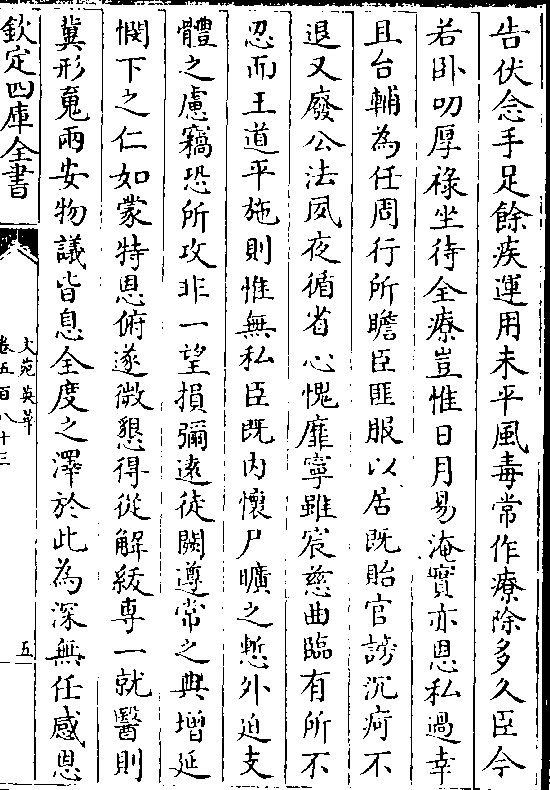 告伏念手足餘疾運用未平風毒常作療除多久臣今
若卧叨厚祿坐待全療豈惟日月易淹實亦恩私過幸
且台輔為任周行所瞻臣匪服以居既貽官謗沉疴不
退又廢公法夙夜循省心愧靡寧雖宸慈曲臨有所不
忍而王道平施則惟無私臣既内懷尸曠之慙外迫支
體之慮竊恐所攻非一望損彌遠徒闕遵常之典增延
憫下之仁如蒙特恩俯遂微懇得從解紱専一就醫則
冀形䰟兩安物議皆息全度之澤於此為深無任感恩
欽定四庫全書
文苑英華
卷五百八十三
五